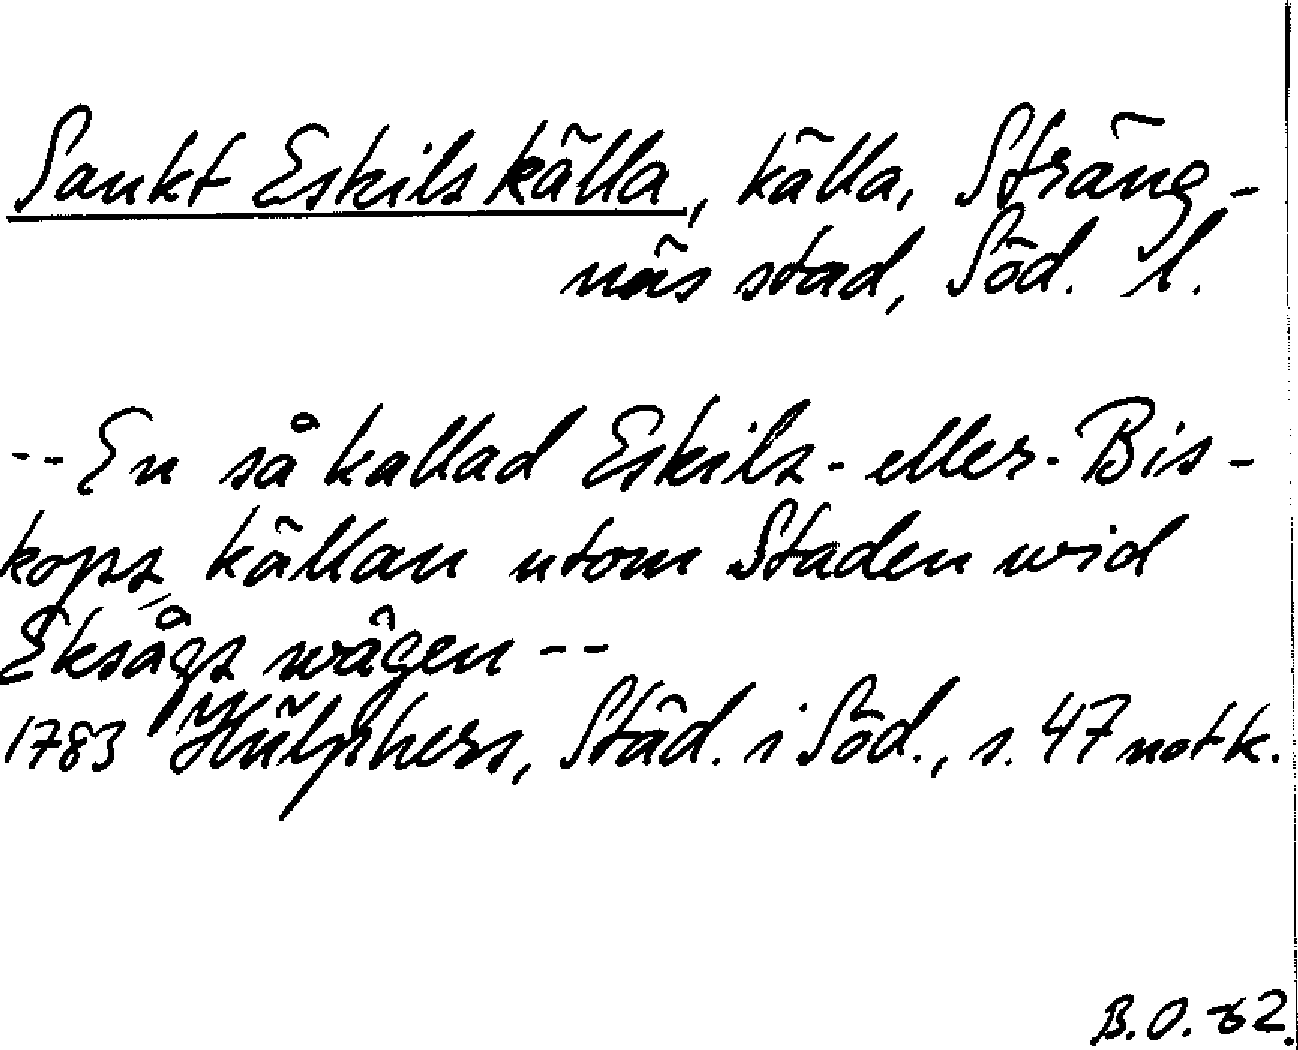 Sankt Eskils källa, källa, Sträng-
näs stad, Söd. l.
--En så kallad Eskils- eller- Bis-
kops källan utom Staden wid
Eksågs wägen --
1783 Hülphers, Städ. i Söd., s. 47 not k.
B.O. 62.